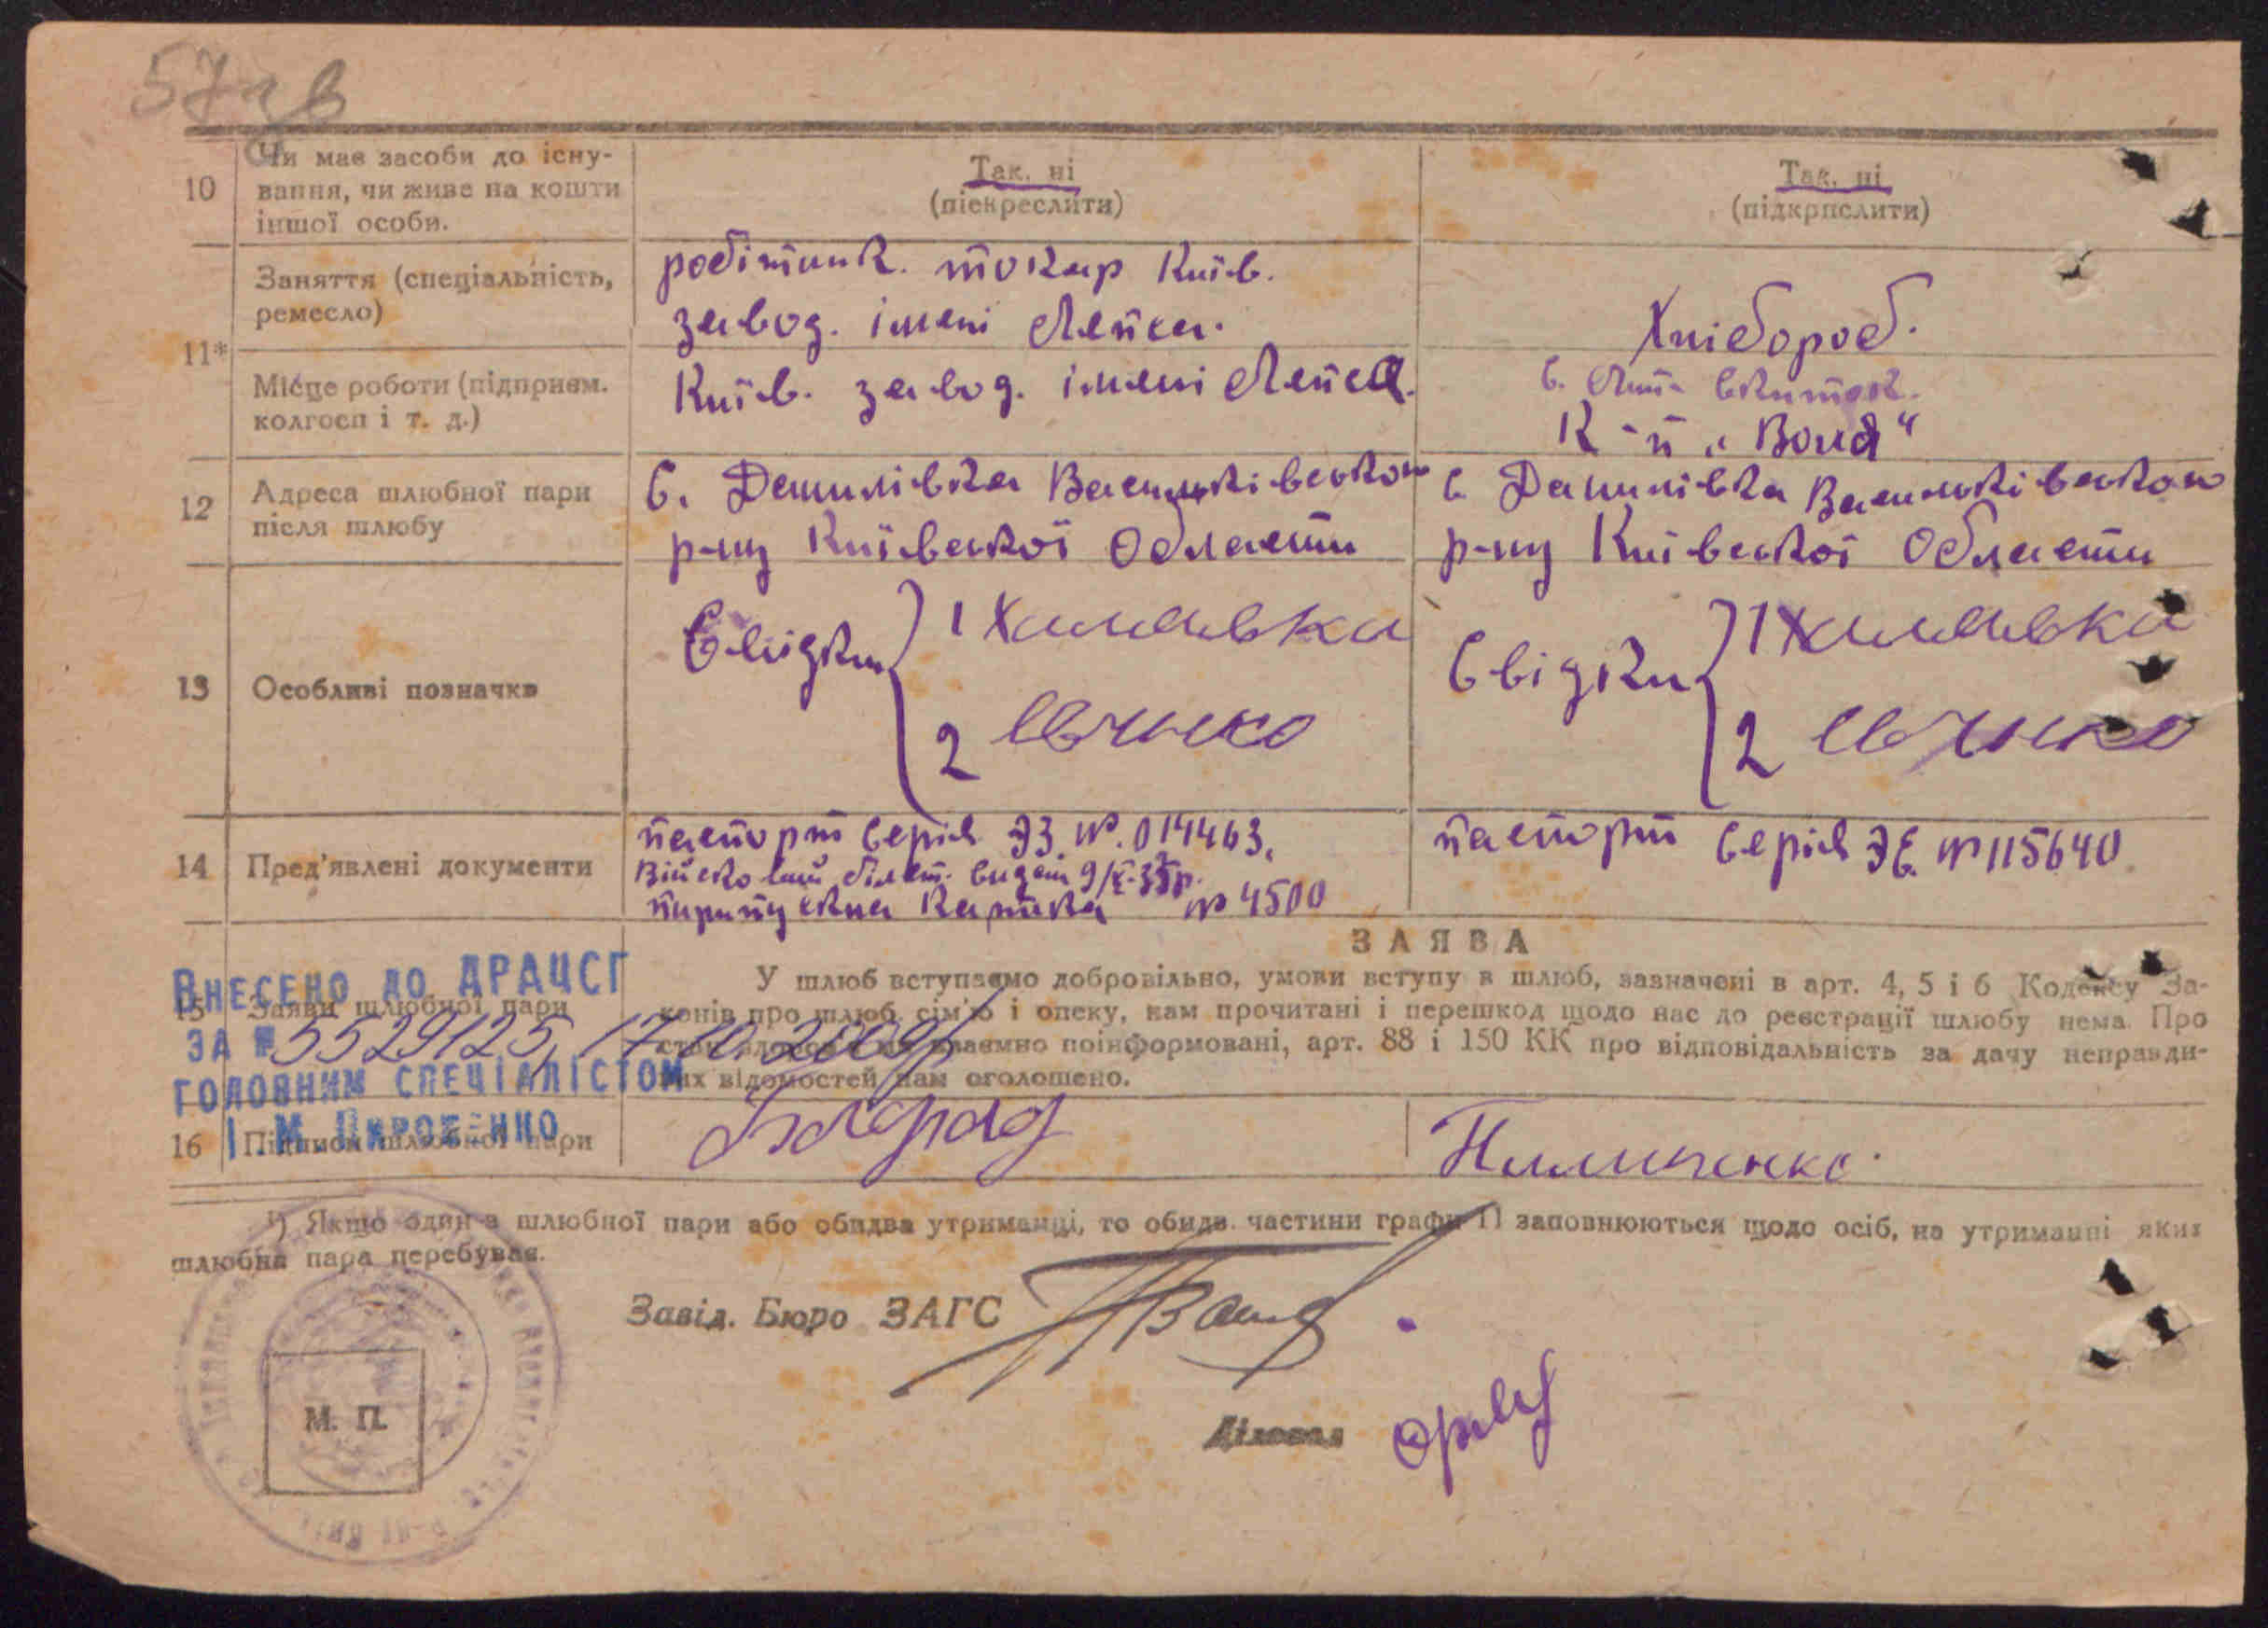 57зв
10 Чи має засоби до існу-
вання, чи живе на кошти
іншої особи.
Так, ні
(піекреслити)
Так, ні
(підкрпслити)
11*
Заняття (спеціальність,
ремесло)
робітник. токар Київ.
завод. імені Лепсе.
Хлібороб.
Місце роботи (підприєм.
колгосп і т. д.)
Київ. завод. імені Лепсе.
с.
К-п „Воля"
12 Адреса шлюбної пари
після шлюбу
с. Данилівка Васильківського
р-ну Київської Области
с. Данилівка Васильківського
р-ну Київської Области
13 Особливі позначки
Свідки 1 Халявка
2
Свідки 1 Халявка
2
14 Пред'явлені документи
паспорт серія ЭЗ № 014463,
Військовий білет. видан 9/X-35р.
припускна картка № 4500
паспорт серія ЭЕ № 115640
ВНЕСЕНО ДО ДРАЦСГ
ЗА № 5529125, 17.10.2009р
ГОЛОВНИМ СПЕЦІАЛІСТОМ
І.М.
15 Заяви шлюбної пари
ЗАЯВА
У шлюб вступаємо добровільно, умови вступу в шлюб, зазначені в арт. 4, 5 і 6 Кодексу За-
конів про шлюб, сім'ю і опеку, нам прочитані і перешкод щодо нас до реєстрації шлюбу нема. Про
стан здоров'я ми взаємно поінформовані, арт. 88 і 150 КК про відповідальність за дачу неправди-
вих відомостей нам оголошено.
16 Підписи шлюбної пари
Пилипенко.
¹) Якщо один з шлюбної пари або обидва утриманці, то обидв. частини графи 11 заповнюються щодо осіб, на утриманні яких
шлюбна пара перебуває.
Завід. Бюро ЗАГС
М. П.
Діловод